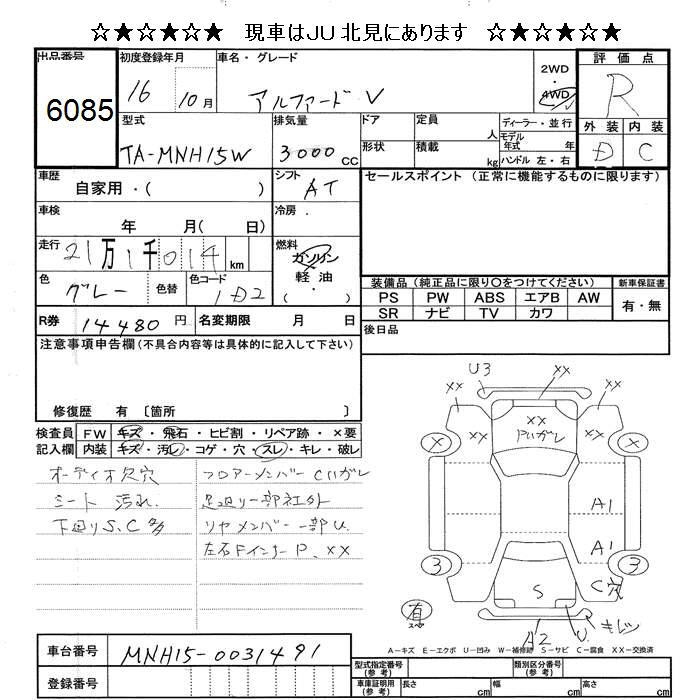 ☆★☆★☆★ 現車はJU北見にあります ☆★☆★☆★
出品番号
6085
初度登録年月
16 10月
車名・グレード
アルファード V
2WD
・
4WD
評価点
R
外装 内装
D C
型式
TA-MNH15W
排気量
3000cc
ドア
形状
定員
人
積載
kg
ディーラー・並行
モデル年式 年
ハンドル 左・右
車歴
自家用・( )
シフト
AT
セールスポイント (正常に機能するものに限ります)
車検
年 月( 日)
冷房
走行
21万1千014km
燃料
ガソリン
軽油
( )
色
グレー
色替
色コード
1D2
装備品 (純正品に限り○をつけてください)
PS PW ABS エアB AW
SR ナビ TV カワ
新車保証書
有・無
R券 14480円
名変期限 月 日
後日品
注意事項申告欄 (不具合内容等は具体的に記入して下さい)
修復歴 有 〔箇所 〕
検査員 FW キズ・飛石・ヒビ割・リペア跡・×要
記入欄 内装 キズ・汚レ・コゲ・穴・スレ・キレ・破レ
オーディオ欠穴
シート 汚れ
下回りS、C多
フロアーメンバー Cハガレ
足廻り一部社外
リヤメンバー一部U
左右Fインナー P、XX
U3
XX
XX
XX
XX
XX
ハガレ
X
X
A1
A1
3
3
C穴
S
有
A2
U
キレツ
A－キズ E－エクボ U－凹み W－補修跡 S－サビ C－腐食 XX－交換済
車台番号 MNH15-0031491
登録番号
型式指定番号
(参考)
類別区分番号
(参考)
車庫証明用
(参考)
長さ cm
幅 cm
高さ cm